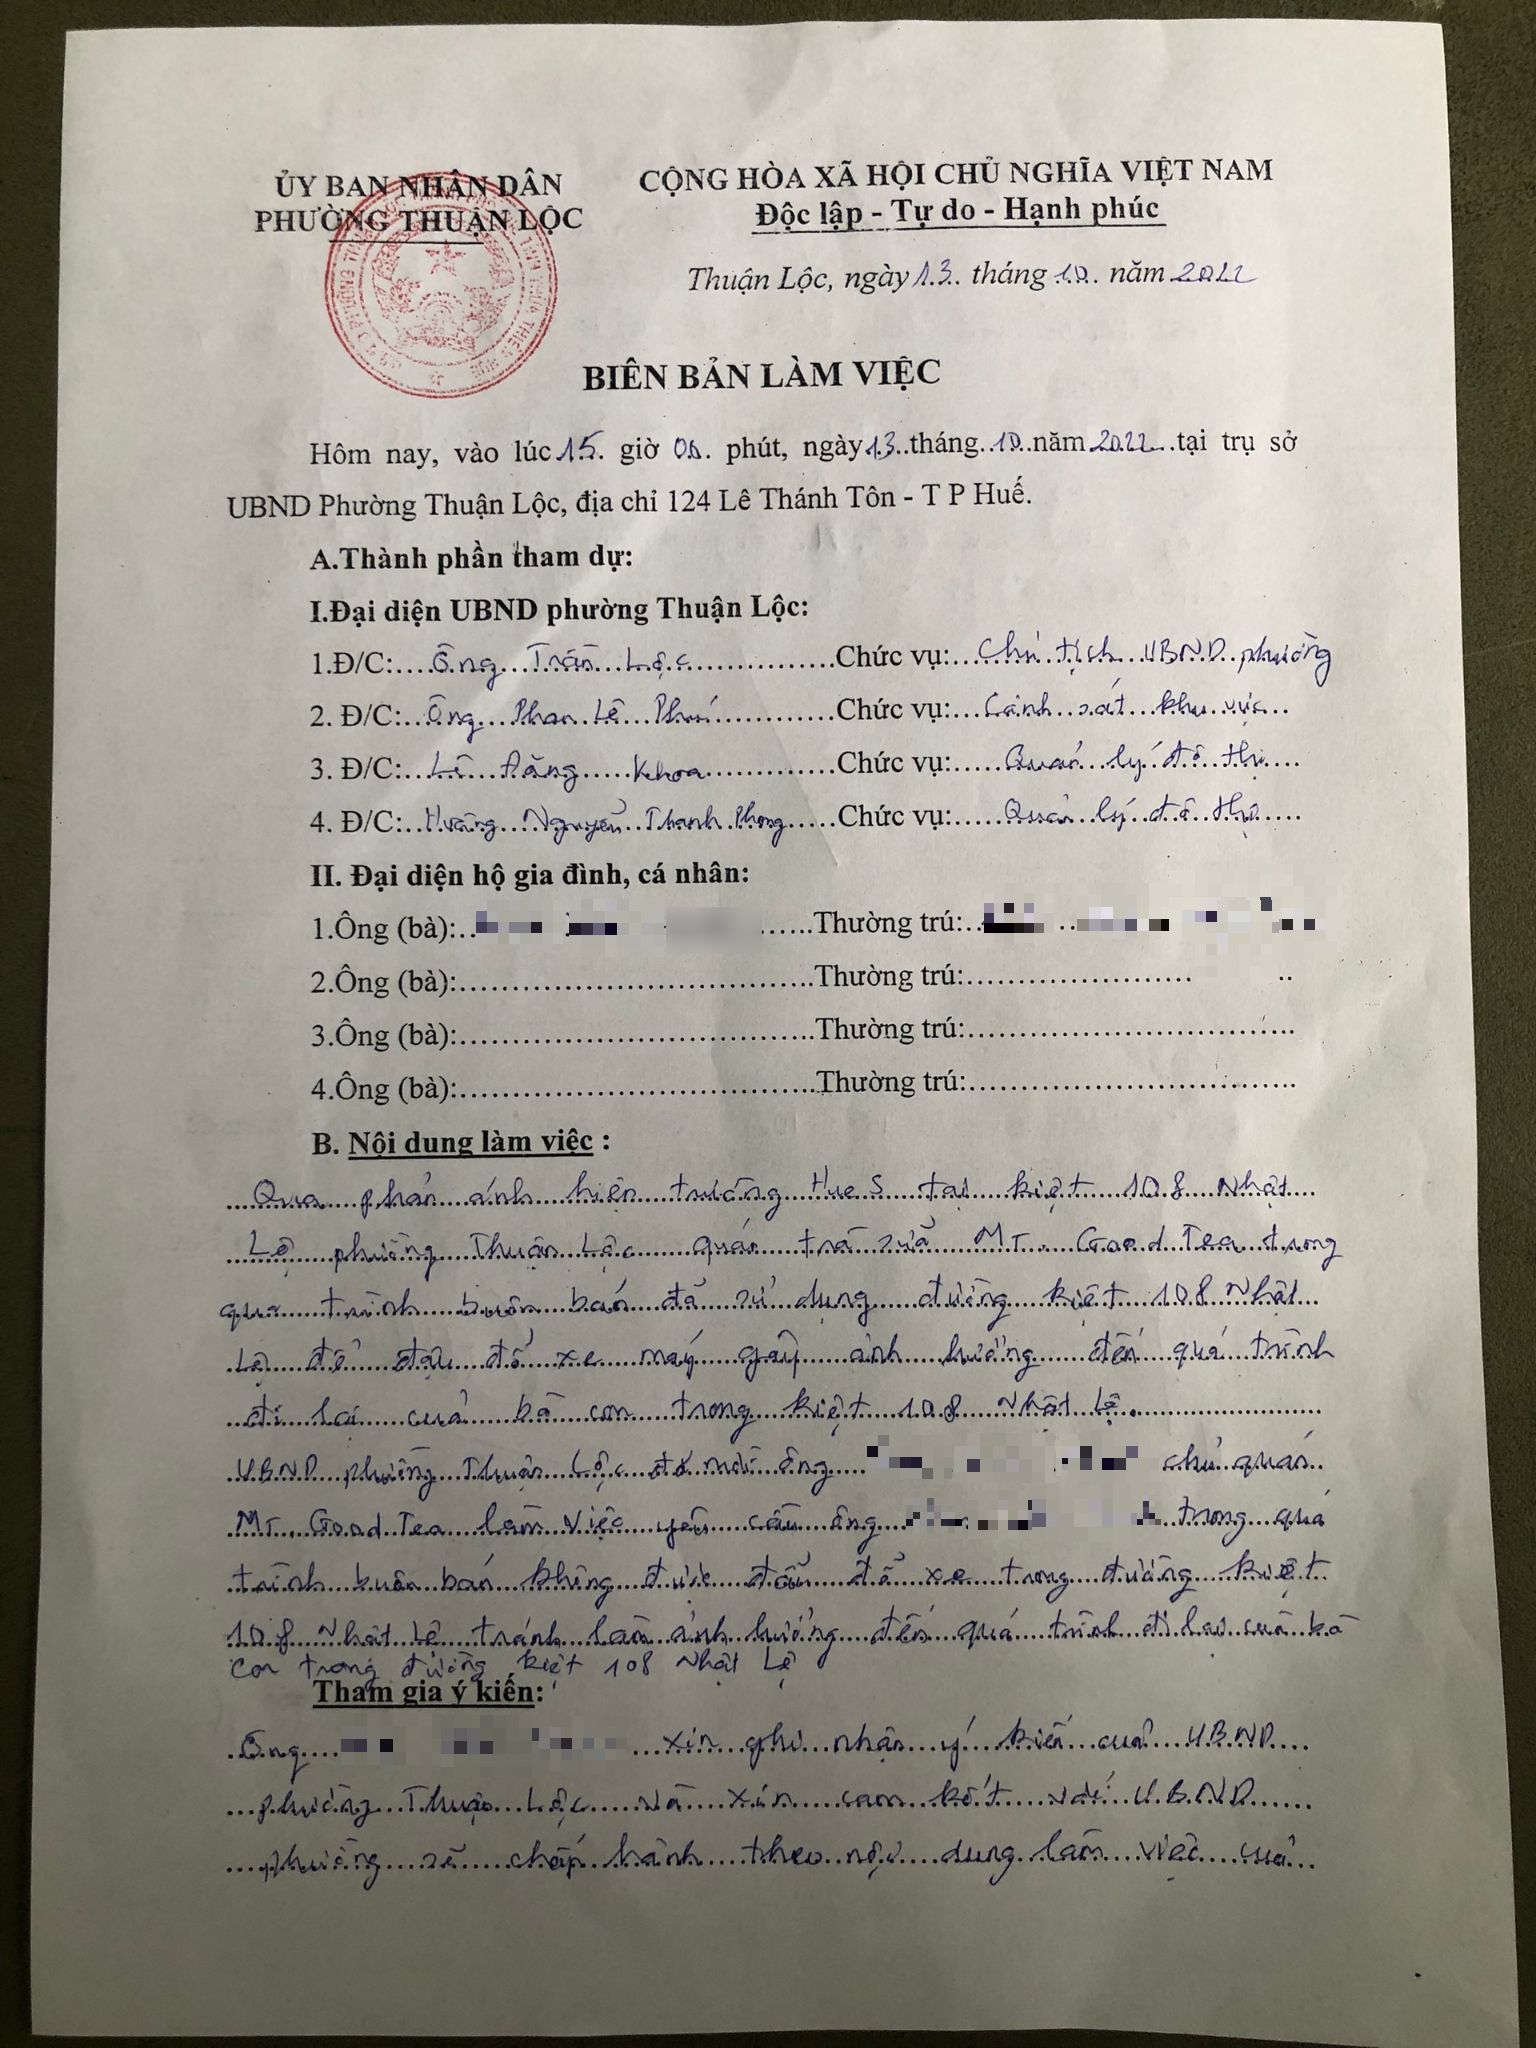 ỦY BAN NHÂN DÂN
PHƯỜNG THUẬN LỘC
CỘNG HÒA XÃ HỘI CHỦ NGHĨA VIỆT NAM
Độc lập - Tự do - Hạnh phúc
Thuận Lộc, ngày 13 tháng 10 năm 2022
BIÊN BẢN LÀM VIỆC
Hôm nay, vào lúc 15 giờ 00 phút, ngày 13 tháng 10 năm 2022 tại trụ sở
UBND Phường Thuận Lộc, địa chỉ 124 Lê Thánh Tôn - T P Huế.
A.Thành phần tham dự:
I.Đại diện UBND phường Thuận Lộc:
1.Đ/C: Ông Trần Lộc Chức vụ: Chủ tịch UBND phường
2. Đ/C: Ông Phan Lê Phú Chức vụ: Cảnh sát khu vực
3. Đ/C: Lê Đăng Khoa Chức vụ: Quản lý đô thị
4. Đ/C: Hoàng Nguyễn Thanh Phong Chức vụ: Quản lý đô thị
II. Đại diện hộ gia đình, cá nhân:
1.Ông (bà): Thường trú:
2.Ông (bà): Thường trú:
3.Ông (bà): Thường trú:
4.Ông (bà): Thường trú:
B. Nội dung làm việc :
Qua phản ánh hiện trường Hue S tại kiệt 108 Nhật
Lệ phường Thuận Lộc quán trà sữa Mr. Good Tea trong
quá trình buôn bán đã sử dụng đường kiệt 108 Nhật
Lệ để đậu đỗ xe máy gây ảnh hưởng đến quá trình
đi lại của bà con trong kiệt 108 Nhật Lệ.
UBND phường Thuận Lộc đã mời ông chủ quán
Mr. Good Tea làm việc yêu cầu ông trong quá
trình buôn bán không được đậu đỗ xe trong đường kiệt
108 Nhật Lệ tránh làm ảnh hưởng đến quá trình đi lại của bà
con trong đường kiệt 108 Nhật Lệ
Tham gia ý kiến:
Ông xin ghi nhận ý kiến của UBND
phường Thuận Lộc và xin cam kết với UBND
phường sẽ chấp hành theo nội dung làm việc của